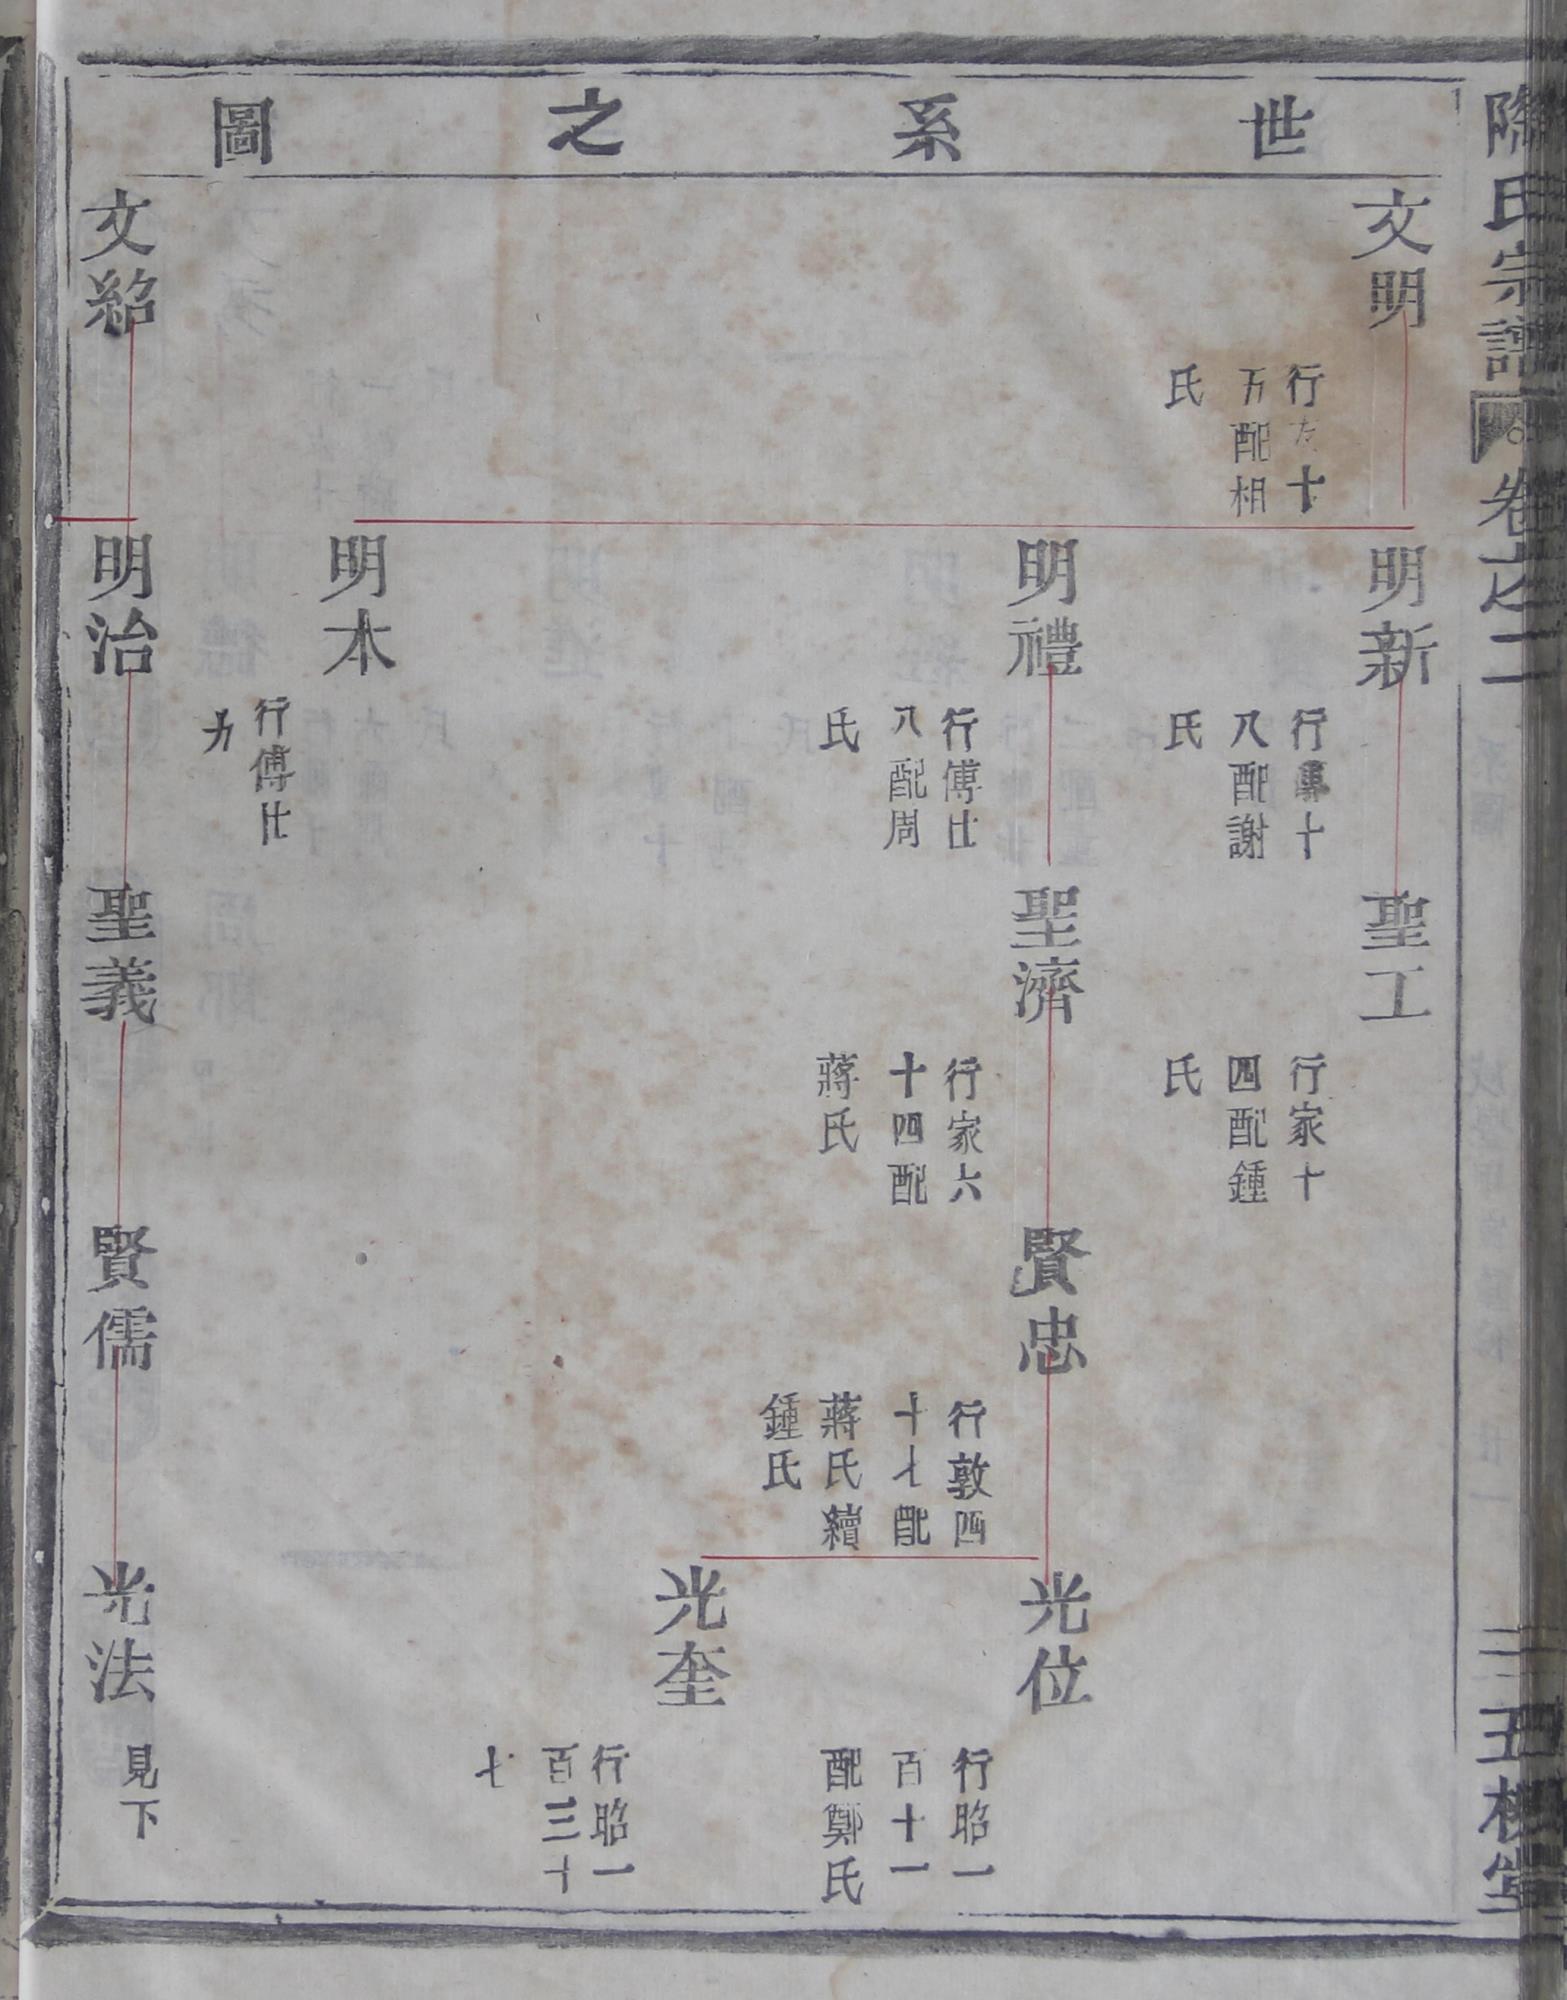 陶氏宗譜 卷之二
五柳堂
世系之圖
文明
行方十
五配相
氏
文紹
明新
行傳十
八配謝
氏
明禮
行傳廿
八配周
氏
明本
行傳廿
九
明治
聖工
行家十
四配鍾
氏
聖濟
行家六
十四配
蔣氏
聖義
賢忠
行敦四
十七配
蔣氏續
鍾氏
賢儒
光位
行昭一
百十一
配鄭氏
光奎
行昭一
百三十
七
光法
見下